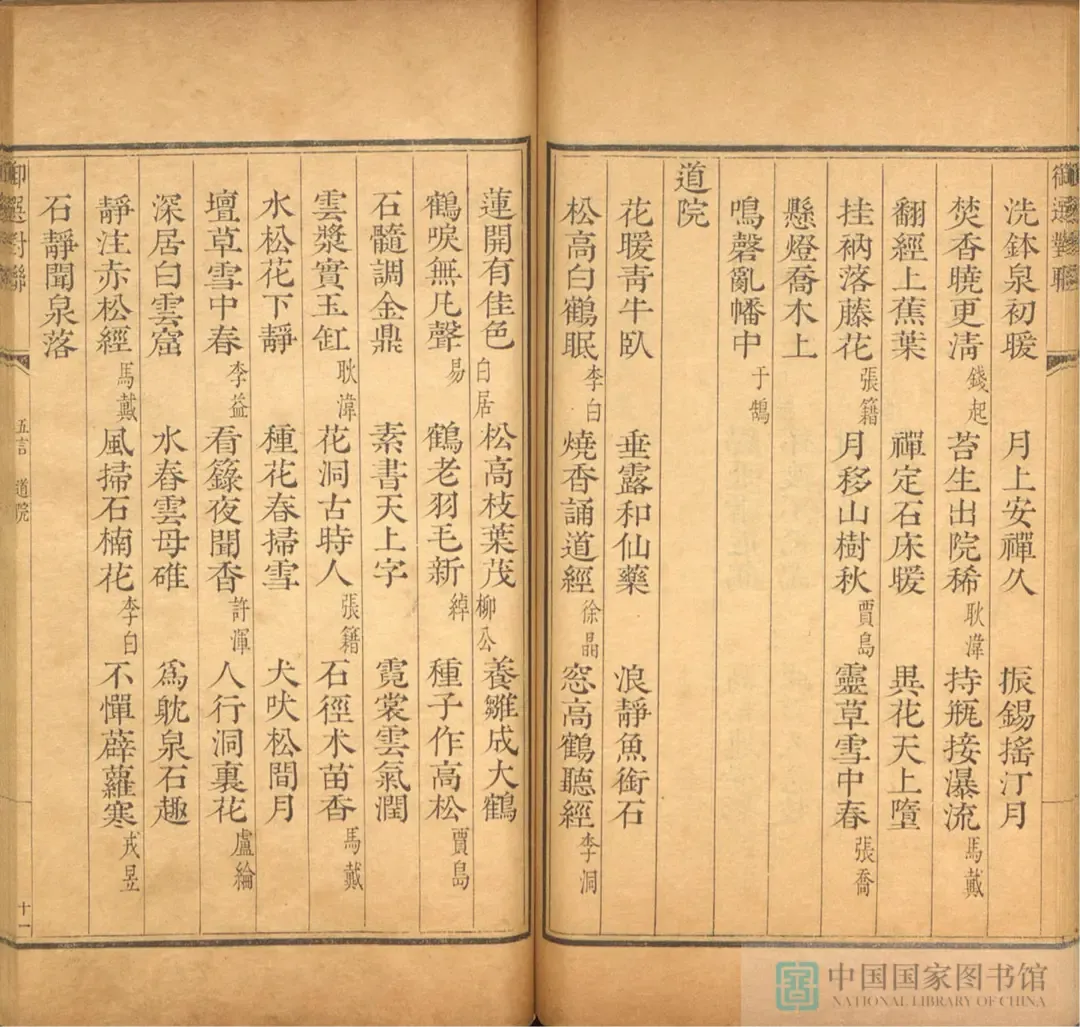 御選對聯
洗鉢泉初暖 月上安禪久 振錫搖汀月
焚香曉更淸 錢起 苔生出院稀 耿湋 持瓶接瀑流 馬戴
翻經上蕉葉 禪定石床暖 異花天上墮
挂衲落藤花 張籍 月移山樹秋 賈島 靈草雪中春 張喬
懸燈喬木上
鳴磬亂幡中 于鵠
道院
花暖靑牛臥 垂露和仙藥 浪靜魚銜石
松高白鶴眠 李白 燒香誦道經 徐晶 窓高鶴聽經 李洞
蓮開有佳色 白居 松高枝葉茂 柳公 養雛成大鶴
鶴唳無凡聲 易 鶴老羽毛新 綽 種子作高松 賈島
石髓調金鼎 素書天上字 霓裳雲氣潤
雲漿實玉缸 耿湋 花洞古時人 張籍 石徑朮苗香 馬戴
水松花下靜 種花春掃雪 犬吠松間月
壇草雪中春 李益 看籙夜聞香 許渾 人行洞裏花 盧綸
深居白雲窟 水舂雲母碓 爲躭泉石趣
靜注赤松經 馬戴 風掃石楠花 李白 不憚薜蘿寒 戎昱
石靜聞泉落
御選對聯 五言 道院 十一
中国国家图书馆
NATIONAL LIBRARY OF CHINA